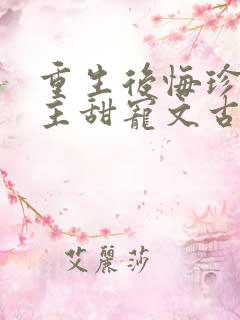 重生後悔珍
主甜寵文古
艾麗莎